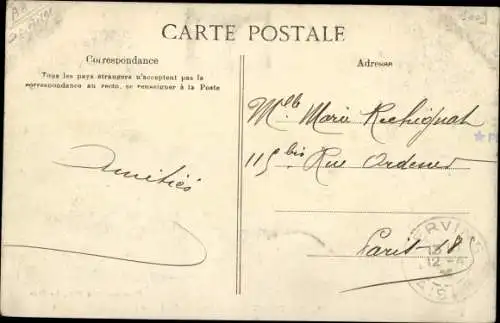 CARTE POSTALE
Correspondance
Tous les pays étrangers n'acceptent pas la
correspondance au recto, se renseigner à la Poste
Amitiés
Adresse
Mlle Marie Rechignat
115 bis Rue Ordener
Paris - 18e